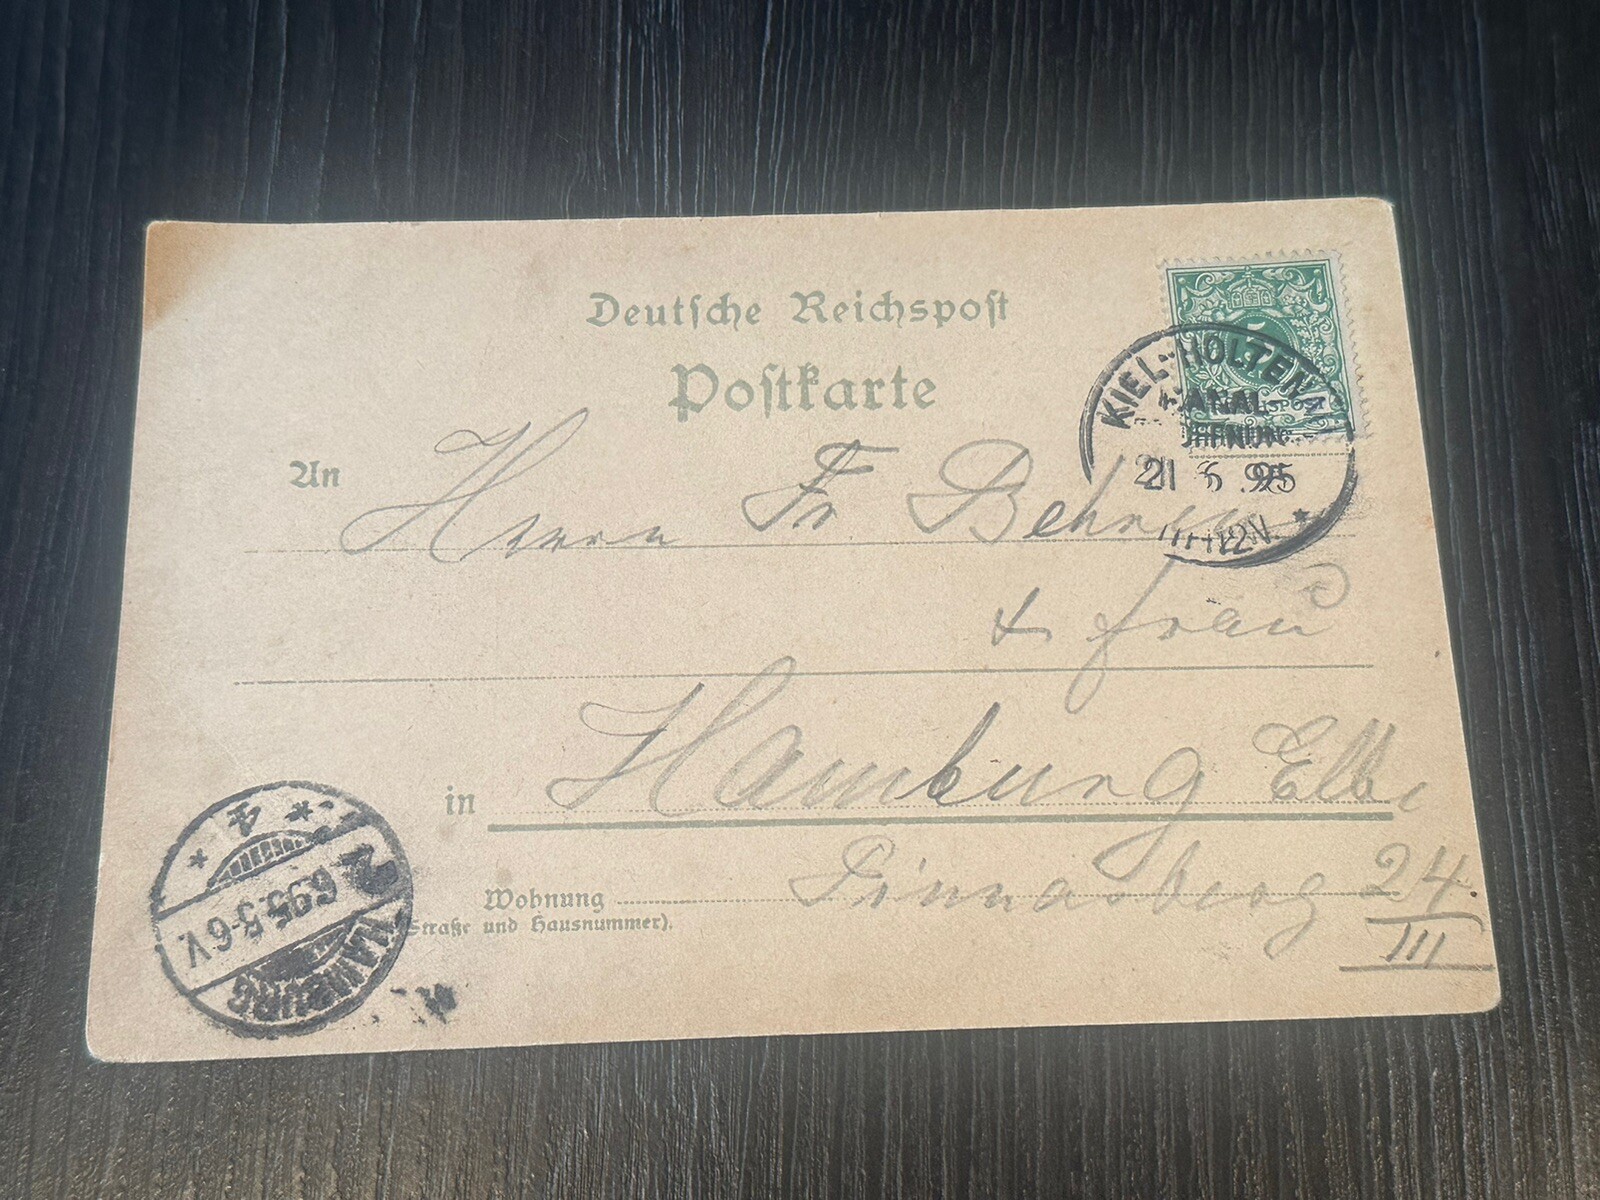 Deutsche Reichspost
Postkarte
KIEL-HOLTENAU
KANAL-
21 6 95
11-12V.
An Herrn Fr Behrens
& Frau
in Hamburg Elbe
Wohnung Pinnasberg 24.
(Straße und Hausnummer).
III
HAMBURG
6.95.5-6V.
4
5